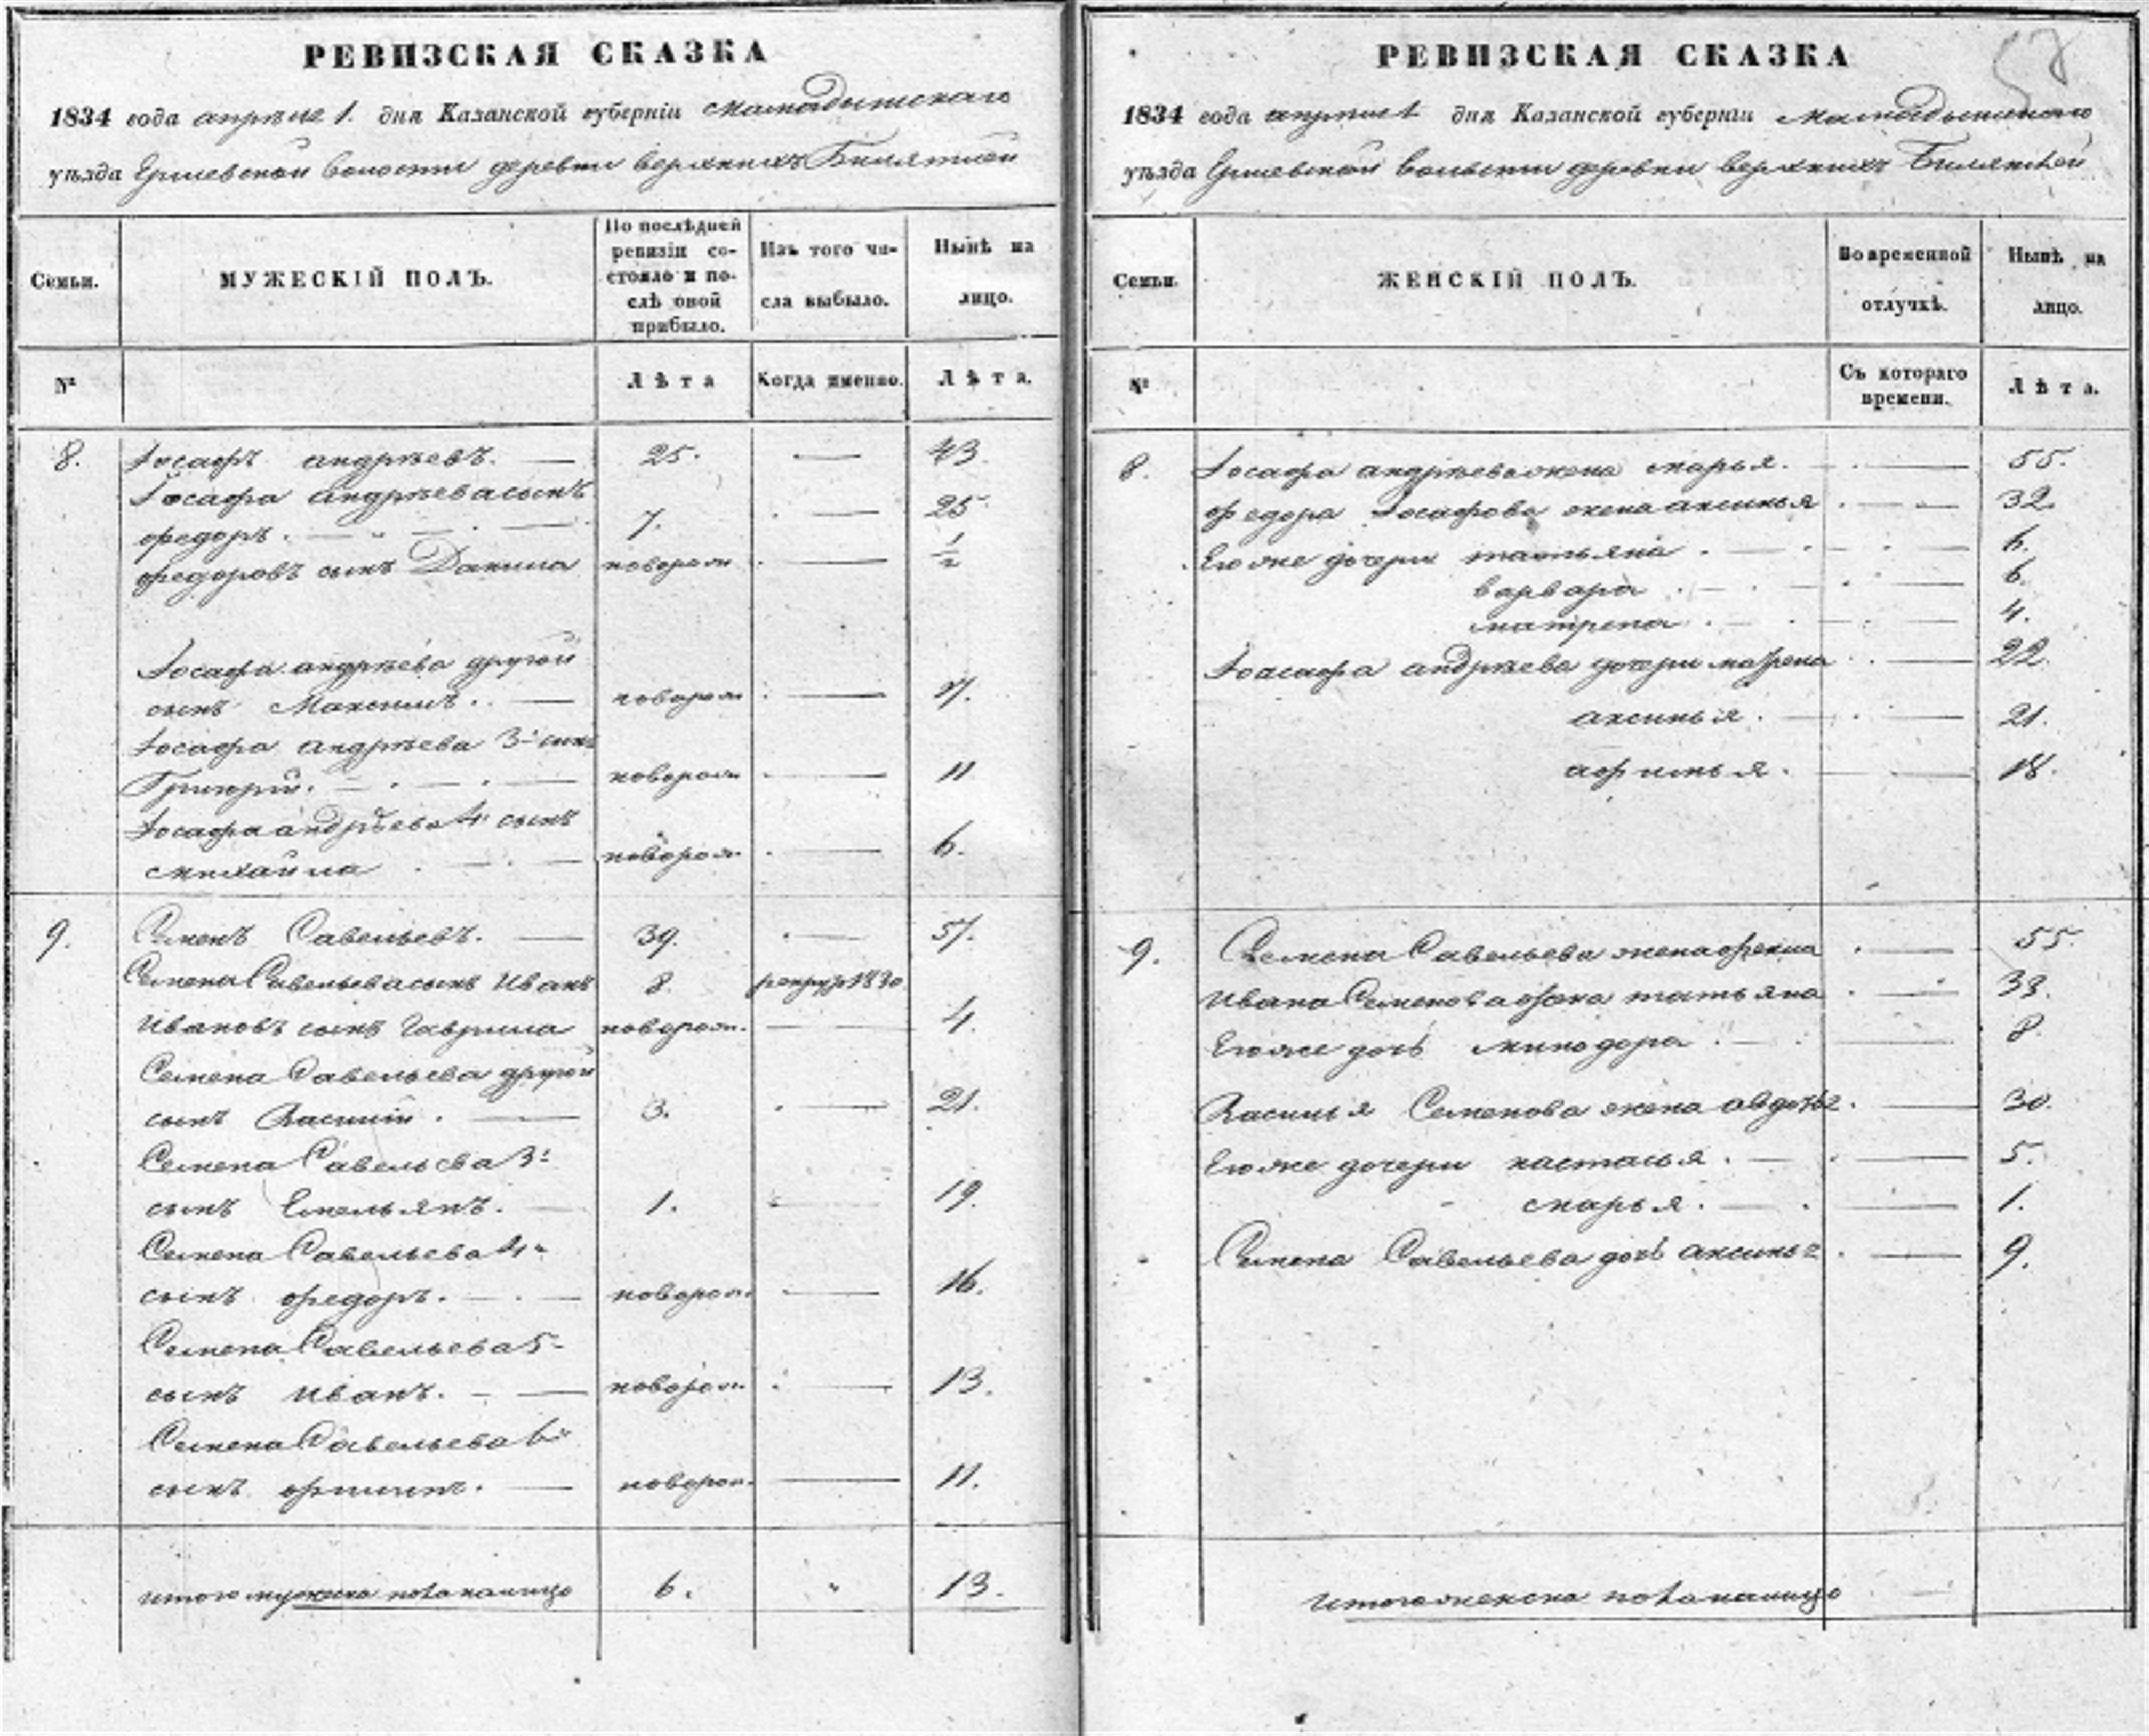 РЕВИЗСКАЯ СКАЗКА
1834 года апреля 1. дня Казанской губерніи Мамадышскаго
уѣзда Ершевской волости деревни верхнихъ
Семьи.
МУЖЕСКІЙ ПОЛЪ.
По послѣдней ревизіи состояло и послѣ оной прибыло.
Изъ того числа выбыло.
Нынѣ на лицо.
№
Лѣта
Когда именно.
Лѣта.
8. Іосафъ андрѣевъ. 25. 43.
Іосафа андрѣева сынъ
федоръ. 7. 25.
федоровъ сынъ Данила новорож 1/2
Іосафа андрѣева другой
сынъ Максимъ. новорож
Іосафа андрѣева 3й сынъ
Григорій. новорож 11
Іосафа андрѣева 4й сынъ
михайла новорож 6.
9. Семенъ Савельевъ. 39. 57.
Семена Савельева сынъ Иванъ 8. 1830
Ивановъ сынъ Гаврила новорож. 4.
Семена Савельева другой
сынъ Василій. 3. 21.
Семена Савельева 3й
сынъ Емельянъ. 1. 19.
Семена Савельева 4й
сынъ федоръ. новорож. 16.
Семена Савельева 5й
сынъ иванъ. новорож. 13.
Семена Савельева 6й
сынъ филипъ. новорож. 11.
итого мужеска пола налицо 6. 13.
РЕВИЗСКАЯ СКАЗКА
1834 года апреля 1 дня Казанской губерніи Мамадышскаго
уѣзда Ершевской волости деревни верхнихъ
Семьи.
ЖЕНСКІЙ ПОЛЪ.
Во временной отлучкѣ.
Нынѣ на лицо.
№
Съ котораго времени.
Лѣта.
8. Іосафа андрѣева жена марья. 55.
федора Іосафова жена аксинья 32.
Его же дочери татьяна 6.
варвара 6.
матрена 4.
Іоасафа андрѣева дочери 22.
аксинья. 21.
афимья. 18.
9. Семена Савельева жена 55.
Ивана Семенова жена татьяна 33.
Его же дочь минодора 8.
Василья Семенова жена авдотья 30.
Его же дочери настасья. 5.
марья. 1.
Семена Савельева дочь аксинья 9.
Итого женска пола налицо